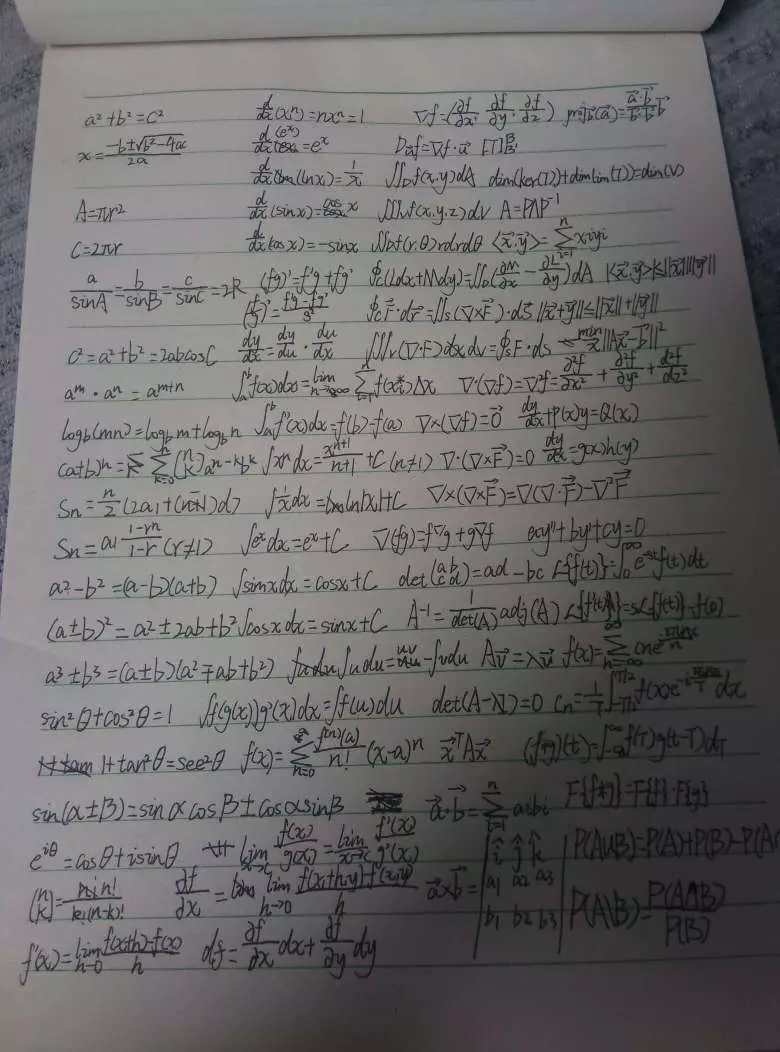 a² + b² = c²   d/dx (xⁿ) = nxⁿ = 1   ∇f = (∂f/∂x, ∂f/∂y, ∂f/∂z)   proj_b(a⃗) = (a⃗·b⃗)/(b⃗·b⃗) b⃗
x = (-b ± √(b² - 4ac))/2a   d/dx (eˣ) = eˣ   D_u⃗ f = ∇f · u⃗   [T]
d/dx (ln x) = 1/x   ∬_D f(x,y) dA   dim(ker(T)) + dim(im(T)) = dim(V)
A = πr²   d/dx (sin x) = cos x   ∭ f(x,y,z) dv   A = PΛP⁻¹
C = 2πr   d/dx (cos x) = -sin x   ∬_D f(r,θ) r dr dθ   ⟨x⃗,y⃗⟩ = Σ_{i=1}^n xᵢyᵢ
a/sinA = b/sinB = c/sinC = 2R   (fg)' = f'g + fg'   ∮_C (Ldx + Mdy) = ∬_D (∂M/∂x - ∂L/∂y) dA   |⟨x⃗,y⃗⟩| ≤ ||x⃗|| ||y⃗||
(f/g)' = (f'g - fg')/g²   ∮_C F⃗ · dr⃗ = ∬_S (∇×F⃗) · dS⃗   ||x⃗+y⃗|| ≤ ||x⃗|| + ||y⃗||
c² = a² + b² = 2abcosC   dy/dx = dy/du · du/dx   ∭_V (∇·F) dv = ∯_S F · ds   min_x ||Ax⃗ - b⃗||²
aᵐ · aⁿ = aᵐ⁺ⁿ   ∫_a^b f(x) dx = lim_{n→∞} Σ_{i=1}^n f(xᵢ*) Δx   ∇·(∇f) = ∇²f = ∂²f/∂x² + ∂²f/∂y² + ∂²f/∂z²
log_b(mn) = log_b m + log_b n   ∫_a^b f'(x) dx = f(b) = f(a)   ∇×(∇f) = 0⃗   dy/dx + P(x)y = Q(x)
(a+b)ⁿ = Σ_{k=0}^n (n k) aⁿ⁻ᵏbᵏ   ∫xⁿ dx = xⁿ⁺¹/(n+1) + C (n≠1)   ∇·(∇×F⃗) = 0   dy/dx = g(x)h(y)
Sn = n/2 (2a₁ + (n-1)d)   ∫1/x dx = ln|x| + C   ∇×(∇×F⃗) = ∇(∇·F⃗) - ∇²F⃗
Sn = a₁ (1-rⁿ)/(1-r) (r≠1)   ∫eˣ dx = eˣ + C   ∇(fg) = f∇g + g∇f   ay'' + by' + cy = 0
a² - b² = (a-b)(a+b)   ∫sinx dx = cosx + C   det(a b c d) = ad - bc   L{f(t)} = ∫_0^∞ e⁻ˢᵗ f(t) dt
(a±b)² = a² ± 2ab + b²   ∫cosx dx = sinx + C   A⁻¹ = 1/det(A) adj(A)   L{f'(t)} = sL{f(t)} - f(0)
a³ ± b³ = (a±b)(a² ∓ ab + b²)   ∫u du = uv - ∫v du   Av⃗ = λv⃗   f(x) = Σ_{n=-∞}^∞
sin²θ + cos²θ = 1   ∫f(g(x)) g'(x) dx = ∫f(u) du   det(A - λI) = 0   Cn = 1/T ∫_{-T/2}^{T/2} f(x) dx
1 + tan²θ = sec²θ   f(x) = Σ_{n=0}^∞ f⁽ⁿ⁾(a)/n! (x-a)ⁿ   x⃗ᵀAx⃗   (f*g)(t) = ∫_{-∞}^∞ f(τ)g(t-τ) dτ
sin(α±β) = sin α cos β ± cos α sin β   a⃗·b⃗ = Σ_{i=1}^n aᵢbᵢ   F{f*g} = F{f}·F{g}
e^{iθ} = cosθ + isinθ   lim_{x→c} f(x)/g(x) = lim_{x→c} f'(x)/g'(x)   a⃗×b⃗ = | î ĵ k̂ a₁ a₂ a₃ b₁ b₂ b₃ |   P(A∪B) = P(A) + P(B) - P(A
(n k) = n!/k!(n-k)!   ∂f/∂x = lim_{h→0} (f(x+h,y) - f(x,y))/h   P(A|B) = P(A∩B)/P(B)
f'(x) = lim_{h→0} (f(x+h) - f(x))/h   df = ∂f/∂x dx + ∂f/∂y dy